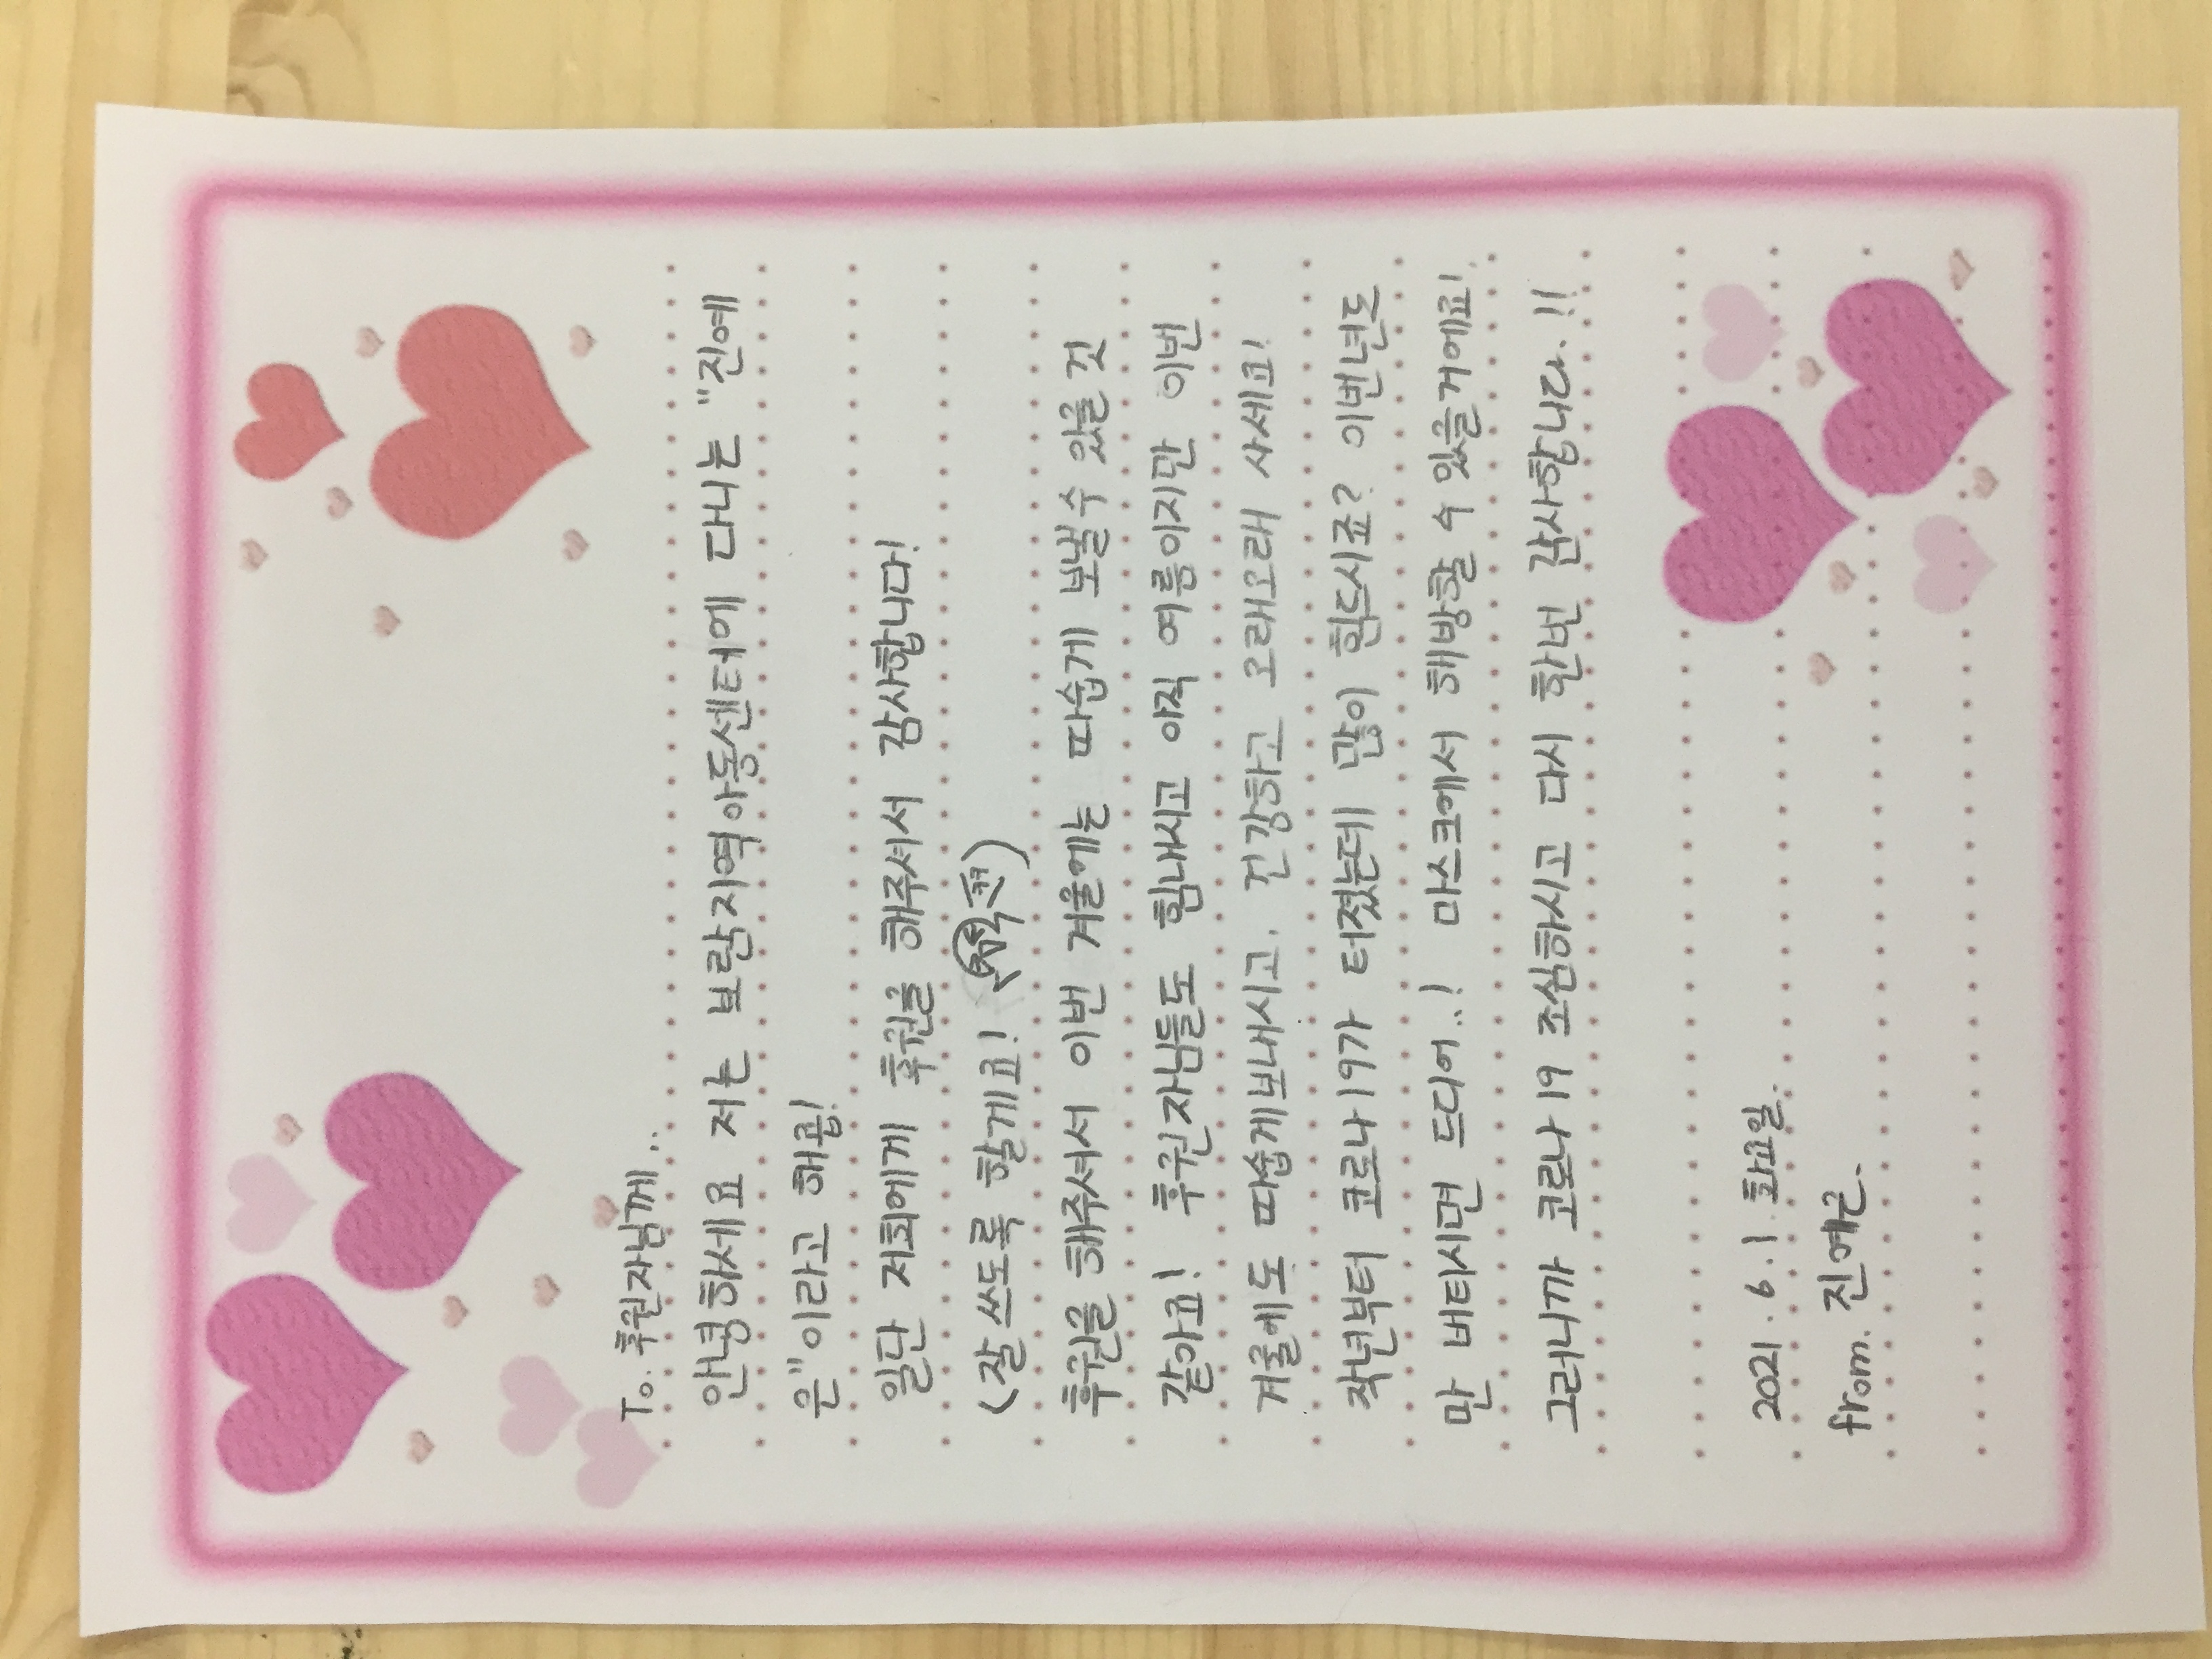 To. 후원자님께..
안녕하세요 저는 보람지역아동센터에 다니는 "진예
은"이라고 해욥!
일단 저희에게 후원글 해주셔서 감사합니다!
(잘 쓰도록 할게요!
후원을 해주셔서 이번 겨울에는 따숩게 보낼수 있을 것
같아요! 후원자님들도 힘내시고 아직 여름이지만 이번
겨울에도 따숩게보내시고, 건강하고 오래오래 사세요!
작년부터 코로나19가 터졌는데 많이 힘드시죠? 이번년도
만 버티시면 드디어..! 마스크에서 해방할 수 있을거에요!
그러니까 코로나19 조심하시고 다시 한번 감사합니다.!!
2021. 6. 1 화요일.
from. 진예은.